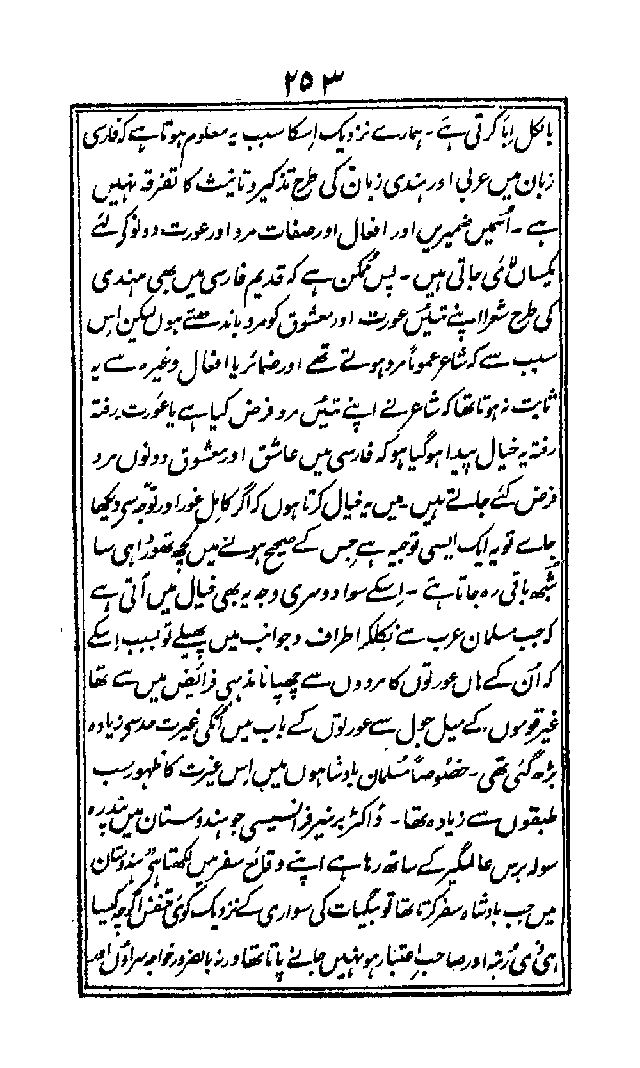 ۲۵۳
بالکل اِبا کرتی ہے۔ ہمارے نزدیک اِسکا سبب یہ معلوم ہوتا ہے کہ فارسی
زبان میں عربی اور ہندی زبان کی طرح تذکیر و تانیث کا تفرقہ نہیں
ہے۔ اُسمیں ضمیریں اور افعال اور صفات مرد اور عورت دونو کے لئے
یکساں لائی جاتی ہیں۔ پس ممکن ہے کہ قدیم فارسی میں بھی ہندی
کی طرح شعرا اپنے تئیں عورت اور معشوق کو مرد باندھتے ہوں لیکن اِس
سبب سے کہ شاعر عموماً مرد ہوتے تھے اور ضمائر یا افعال وغیرہ سے یہ
ثابت نہ ہوتا تھا کہ شاعر نے اپنے تئیں مرد فرض کیا ہے یا عورت رفتہ
رفتہ یہ خیال پیدا ہو گیا ہو کہ فارسی میں عاشق اور معشوق دونوں مرد
فرض کئے جاتے ہیں۔ میں یہ خیال کرتا ہوں کہ اگر کامل غور اور توجہ سے دیکھا
جاے تو یہ ایک ایسی توجیہ ہے جس کے صحیح ہونے میں کچھ تھوڑا ہی سا
شبھہ باقی رہ جاتا ہے۔ اِسکے سوا دوسری وجہ یہ بھی خیال میں آتی ہے
کہ جب مسلمان عرب سے نکلکر اطراف و جوانب میں پھیلے تو بسبب اِسکے
کہ اُن کے ہاں عورتوں کا مردوں سے چھپانا مذہبی فرائض میں سے تھا
غیر قوموں کے میل جول سے عورتوں کے باب میں اُنکی غیرت حد سے زیادہ
بڑھ گئی تھی۔ خصوصاً مسلمان بادشاہوں میں اِس غیرت کا ظہور سب
طبقوں سے زیادہ تھا۔ ڈاکٹر برنیر فرانسیسی جو ہندوستان میں پندرہ
سولہ برس عالمگیر کے ساتھ رہا ہے اپنے وقائع سفر میں لکھتا ہے ہندوستان
میں جب بادشاہ سفر کرتا تھا تو بیگمات کی سواری کے نزدیک کوئی متنفس اگرچہ کیسا
ہی ذی رُتبہ اور صاحبِ اعتبار ہو نہیں جانے پاتا تھا ورنہ بالضرور خواجہ سراؤں اور